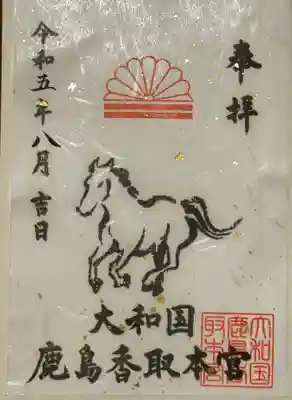 奉拝
大和国
鹿島香取本宮
令和五年八月吉日
大和国
鹿島香
取本宮